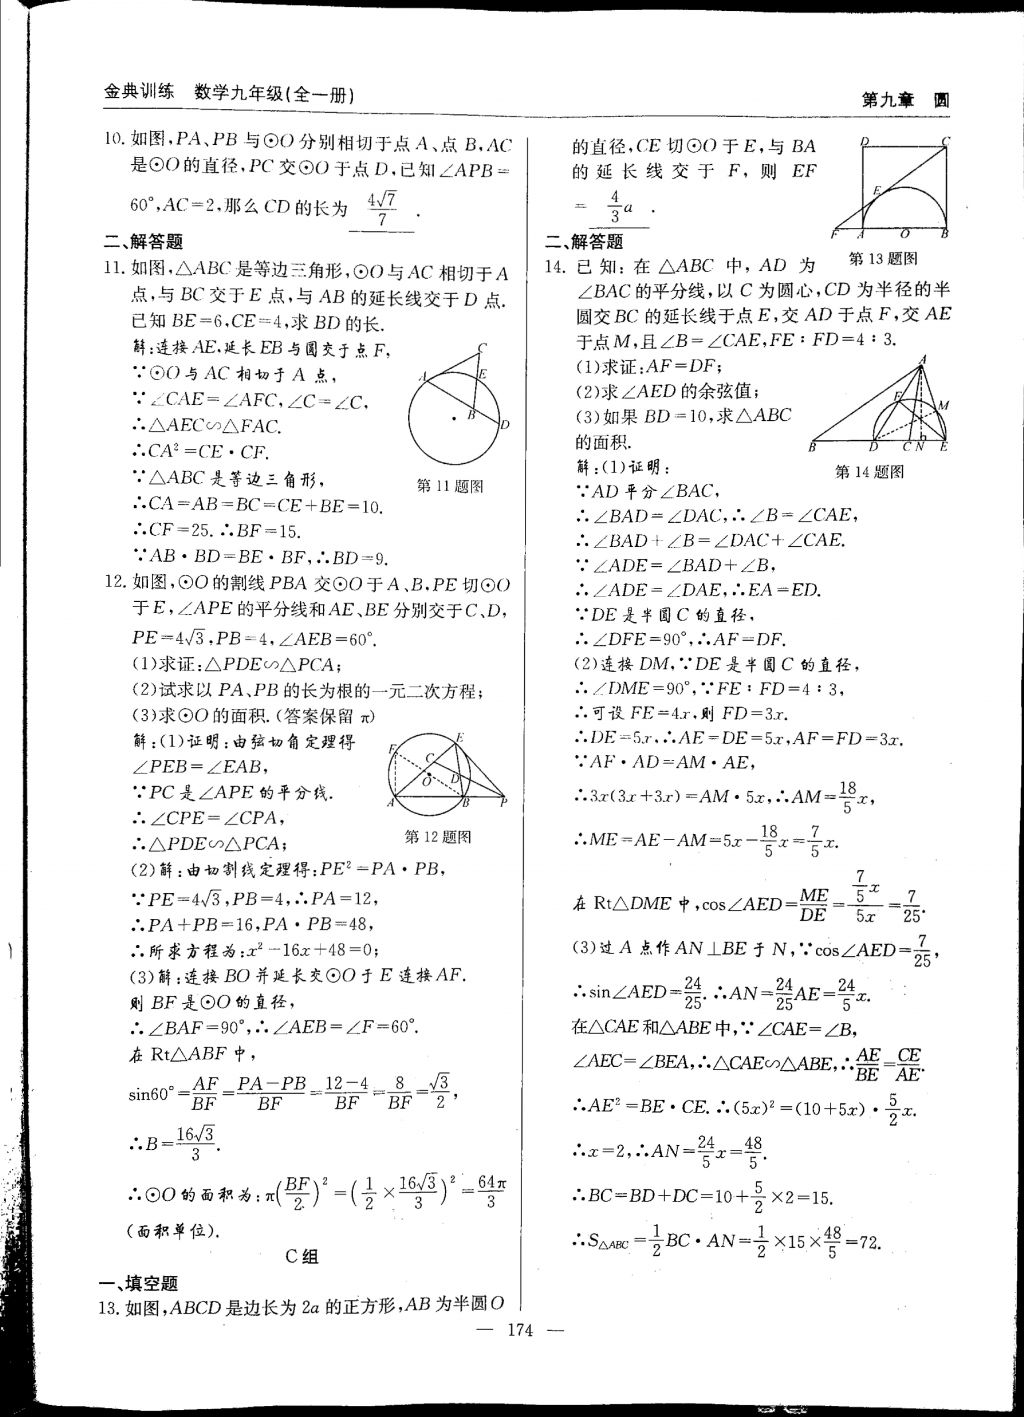 金典训练 数学九年级(全一册)
第九章 圆
10. 如图,PA、PB 与⊙O 分别相切于点 A、点 B,AC
是⊙O 的直径,PC 交⊙O 于点 D,已知∠APB=
60°,AC=2,那么 CD 的长为 4√7/7 .
二、解答题
11. 如图,△ABC 是等边三角形,⊙O 与 AC 相切于 A
点,与 BC 交于 E 点,与 AB 的延长线交于 D 点.
已知 BE=6,CE=4,求 BD 的长.
解:连接 AE,延长 EB 与圆交于点 F,
∵⊙O 与 AC 相切于 A 点,
∵∠CAE=∠AFC,∠C=∠C,
∴△AEC∽△FAC.
∴CA²=CE·CF.
∵△ABC 是等边三角形,
∴CA=AB=BC=CE+BE=10.
∴CF=25. ∴BF=15.
∵AB·BD=BE·BF,∴BD=9.
C
A
E
B
D
第 11 题图
12. 如图,⊙O 的割线 PBA 交⊙O 于 A、B,PE 切⊙O
于 E,∠APE 的平分线和 AE、BE 分别交于 C、D,
PE=4√3,PB=4,∠AEB=60°.
(1)求证:△PDE∽△PCA;
(2)试求以 PA、PB 的长为根的一元二次方程;
(3)求⊙O 的面积.(答案保留 π)
解:(1)证明:由弦切角定理得
∠PEB=∠EAB,
∵PC 是∠APE 的平分线.
∴∠CPE=∠CPA,
∴△PDE∽△PCA;
E
F
C
D
O
A
B
P
第 12 题图
(2)解:由切割线定理得:PE²=PA·PB,
∵PE=4√3,PB=4,∴PA=12,
∴PA+PB=16,PA·PB=48,
∴所求方程为:x²-16x+48=0;
(3)解:连接 BO 并延长交⊙O 于 E 连接 AF.
则 BF 是⊙O 的直径,
∴∠BAF=90°,∴∠AEB=∠F=60°.
在 Rt△ABF 中,
sin60°=AF/BF=(PA-PB)/BF=(12-4)/BF=8/BF=√3/2,
∴B=16√3/3.
∴⊙O 的面积为:π(BF/2)²=(1/2×16√3/3)²=64π/3
(面积单位).
C 组
一、填空题
13. 如图,ABCD 是边长为 2a 的正方形,AB 为半圆 O
的直径,CE 切⊙O 于 E,与 BA
的延长线交于 F,则 EF
= 4/3 a .
D
C
E
F
A
O
B
第 13 题图
二、解答题
14. 已知:在△ABC 中,AD 为
∠BAC 的平分线,以 C 为圆心,CD 为半径的半
圆交 BC 的延长线于点 E,交 AD 于点 F,交 AE
于点 M,且∠B=∠CAE,FE∶FD=4∶3.
(1)求证:AF=DF;
(2)求∠AED 的余弦值;
(3)如果 BD=10,求△ABC
的面积.
A
F
M
B
D
C
N
E
第 14 题图
解:(1)证明:
∵AD 平分∠BAC,
∴∠BAD=∠DAC,∴∠B=∠CAE,
∴∠BAD+∠B=∠DAC+∠CAE.
∵∠ADE=∠BAD+∠B,
∴∠ADE=∠DAE,∴EA=ED.
∵DE 是半圆 C 的直径,
∴∠DFE=90°,∴AF=DF.
(2)连接 DM,∵DE 是半圆 C 的直径,
∴∠DME=90°,∵FE∶FD=4∶3,
∴可设 FE=4x,则 FD=3x.
∴DE=5x,∴AE=DE=5x,AF=FD=3x.
∵AF·AD=AM·AE,
∴3x(3x+3x)=AM·5x,∴AM=18/5 x,
∴ME=AE-AM=5x-18/5 x=7/5 x.
在 Rt△DME 中,cos∠AED=ME/DE=(7/5 x)/5x=7/25.
(3)过 A 点作 AN⊥BE 于 N,∵cos∠AED=7/25,
∴sin∠AED=24/25. ∴AN=24/25 AE=24/5 x.
在△CAE 和△ABE 中,∵∠CAE=∠B,
∠AEC=∠BEA,∴△CAE∽△ABE,∴AE/BE=CE/AE.
∴AE²=BE·CE. ∴(5x)²=(10+5x)·5/2 x.
∴x=2,∴AN=24/5 x=48/5.
∴BC=BD+DC=10+5/2×2=15.
∴S△ABC=1/2 BC·AN=1/2×15×48/5=72.
— 174 —